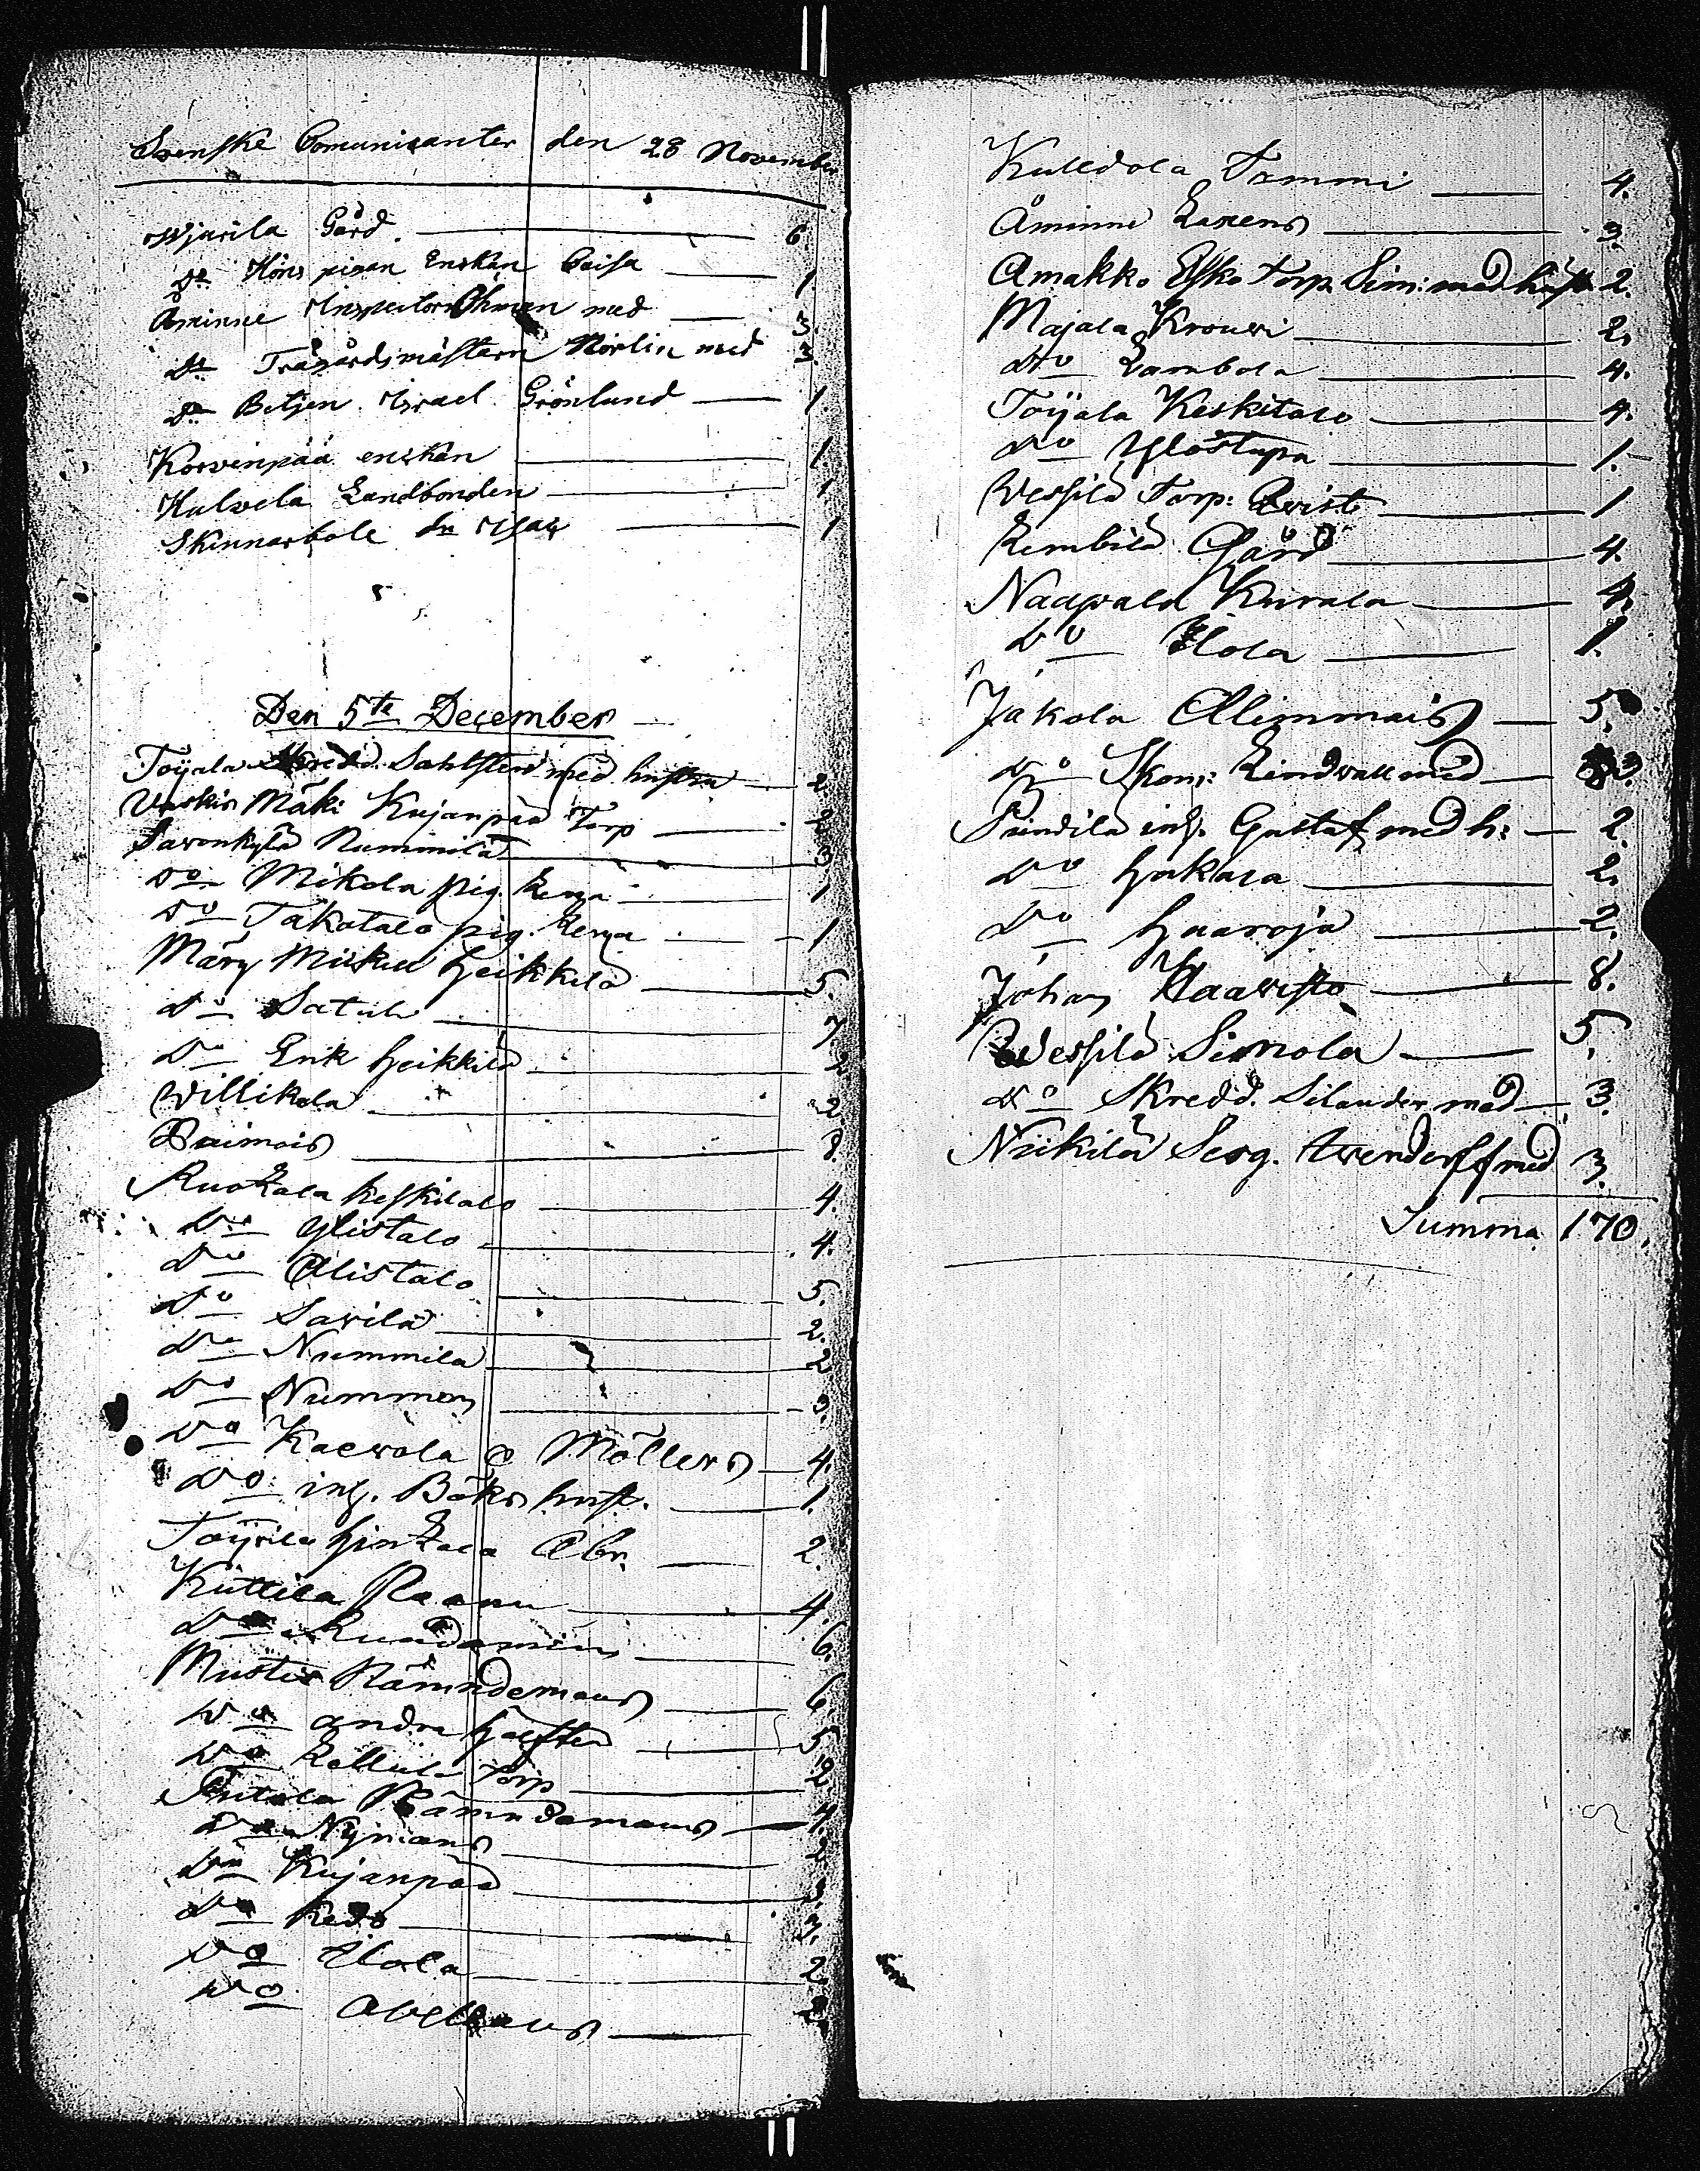 Svenske Comunicanter den 28 November
Wjurila Gård 6
Do Höns pigan Enkan Caisa 1.
Åminne Inspector Öhman med 3.
Do Trägårdsmästarn Norlin med 3.
Do Betjen. Israel Grönlund 1.
Korvenpää enkan 1.
Kulvela Landbonden 1
Skinnarbole dr Isac 1
Den 5te December
Töÿala Skredd. Sahlsten med hustru 2
Vaskis Mäki Kujanpää Torp 2
Savonkylä Nummila 3
Do Mikola pig. Lena 1
Do Takatalo pig. Lena 1
Märy Mickel heikkilä 5.
Do Satuli 7
Do Erik heikkilä 2
Willikala 2
Paimais 8.
Ruokala keskitalo 4.
Do Ylistalo 4.
Do Alistalo 5.
Do Savila 2.
Do Nummila 2
Do Nummen 3.
Do Kaerola Möllers 4.
Do inh. Böks hust. 1.
Toyrila hinkala Abr. 2.
Kuttila Raanu 4.
Do 6.
Mustis Nämndemans 6
Do andra hälften 5
Do Torp 2.
Nämndemans 4.
Do Nymans 2
Do Kujanpää 3.
Do Kedo 3.
Do Ilola 2.
Do 2
Kulldola Tammi 4.
Åminne Laxens 3.
Amakko Esko Torp. Sim: med hust 2.
Majala Krouvi 2.
Do Lambola 4.
Töÿala Keskitalo 4.
Do Ylöstupa 1.
Vessilä Torp: Qvist 1
Rembilä Gård 4.
Naapala Kurala 4.
Do Ilola 1.
Jakola Alimmais 5.
Do Skom: Lindvall med 3.
Pundila inh. Gustaf med h: 2.
Do hakala 2.
Do haaroja 2.
Johan Haavisto 8.
Vessilä Simola 5.
Do Skredd. Silander med 3.
Nikilä Serg. Awendorff med 3.
Summa 170.